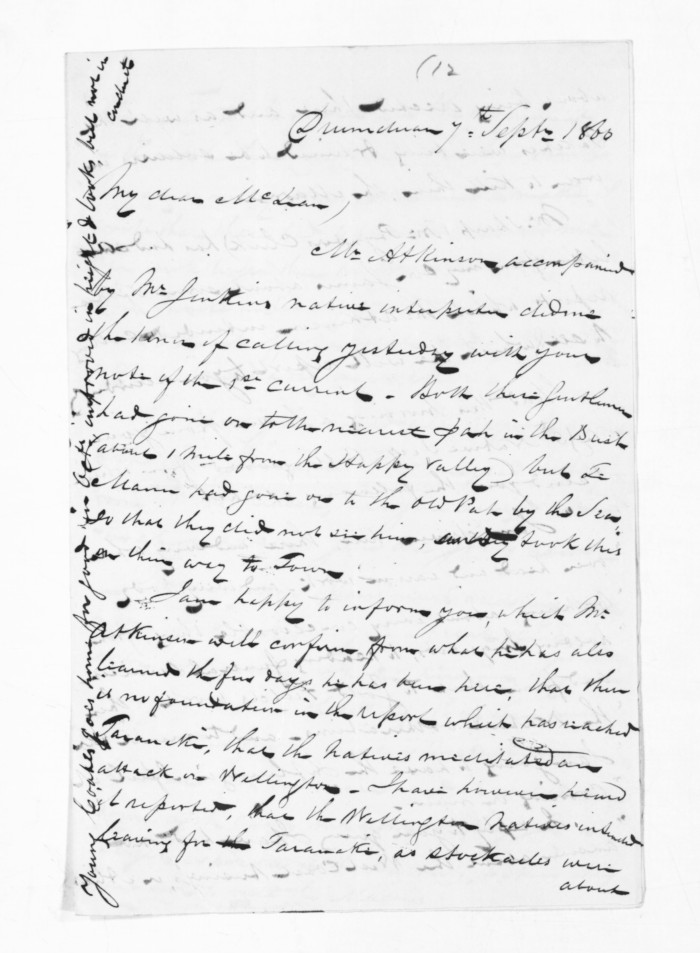 (12
Drumduan 7th Septr 1860
My dear McLean,
Mr Atkinson accompanied
by Mr Jenkins native interpreter did me
the honor of calling yesterday with your
note of the 1st current. Both these Gentlemen
had gone on to the nearest Pah in the Bush
(about 1 mile from the Happy Valley) but Te
had gone on to the old Pah by the Sea
so that they did not see him, took this
on their way to Town.
I am happy to inform you, which Mr
Atkinson will confirm from what he has also
learned the few days he has been here, that there
is no foundation in the report which has reached
Taranaki, that the Natives meditated an
attack on Wellington. I have however heard
it reported, that the Wellington Natives intended
leaving for the Taranaki, as stockades were
about
Young Coates goes home for good in Octr improved in height & looks but not in
conduct